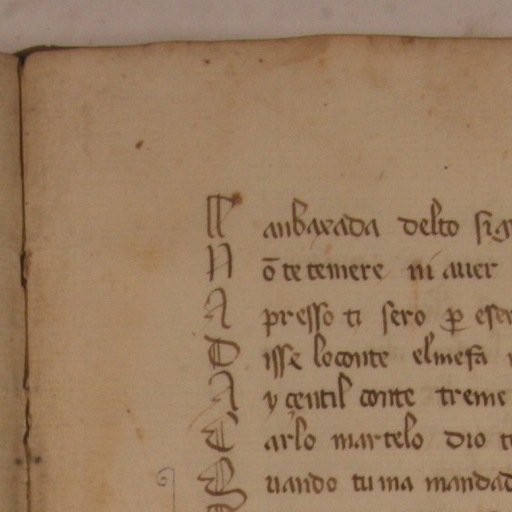 L anbaxada delto sig
N ō te temere ni auer
A presso ti sero ꝑ eser
D isse lo conte el mesa
A y çentil conte treme
C arlo martelo dio t
Q uando tu ma mandad